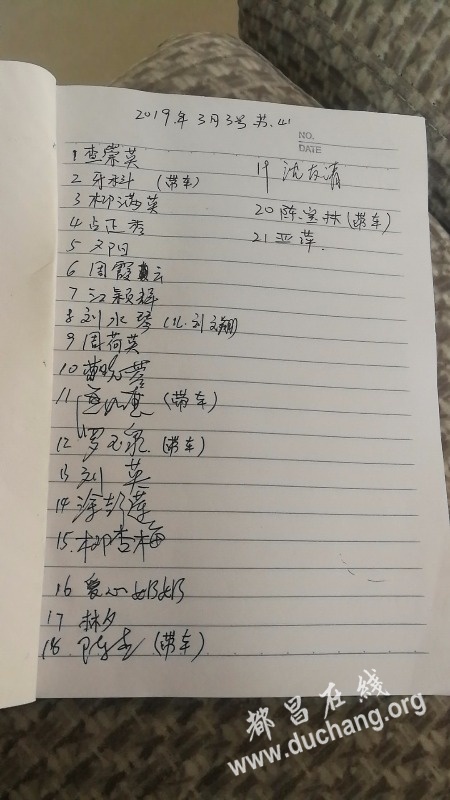 2019年3月3号苏山
NO.
DATE
1 查崇英
2 牙科 (带车)
3 柳满英
4 占正秀
5 邓闩
6 周霞云
7 江颖辉
8 刘水琴 (儿.刘文翔)
9 周荷英
10 曹晓蓉
11 (带车)
12 罗玉泉 (带车)
13 刘英
14 涂彭莲
15. 柳杏梅
16 爱心奶奶
17 林夕
18 陈志 (带车)
19 沈友清
20 陈宝林 (带车)
21 亚萍.
都昌在线
www.duchang.org